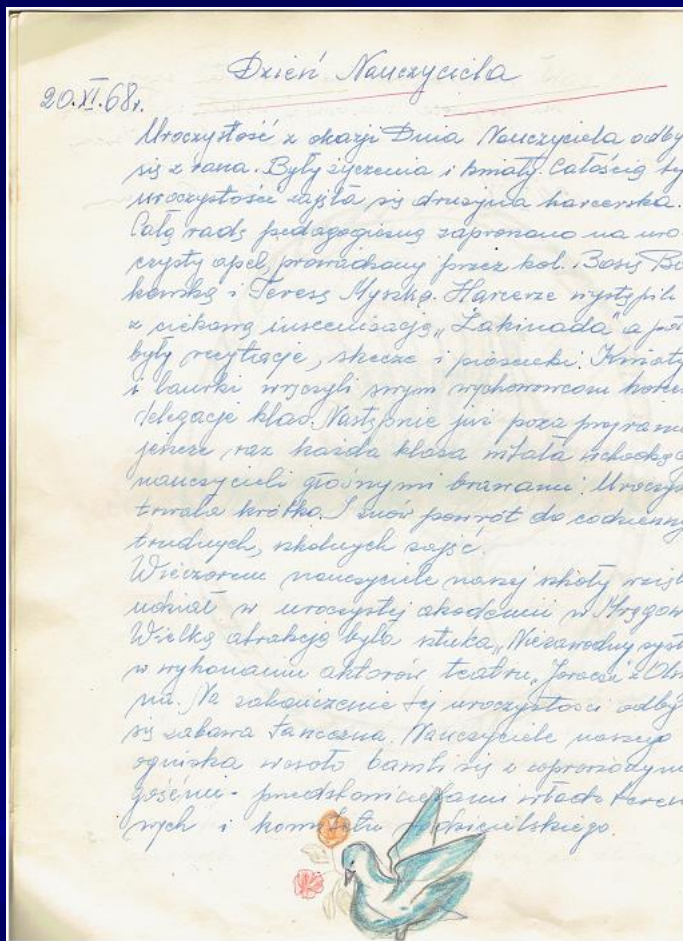 Dzień Nauczyciela
20.XI.68r.
Uroczystość z okazji Dnia Nauczyciela odby
się z rana. Były życzenia i kwiaty. Całością ty
uroczystości zajęła się drużyna harcerska.
Całą radę pedagogiczną zaproszono na uro-
czysty apel, prowadzony przez kol. Basię Bu
kowską i Teresę Myszkę. Harcerze wystąpili
z ciekawą inscenizacją „Żakinada" a pot
były recytacje, skecze i piosenki. Kwiaty
i laurki wręczyli swym wychowawcom harce
delegacje klas. Następnie już poza programe
jeszcze raz każda klasa witała wchodząc
nauczycieli głośnymi brawami. Uroczys
trwała krótko. I znów powrót do codzienny
trudnych, szkolnych zajęć.
Wieczorem nauczyciele naszej szkoły wzięl
udział w uroczystej akademii w Mrągow
Wielką atrakcją była sztuka „Niezawodny syst
w wykonaniu aktorów teatru „Jaracza" z Olsz
na. Na zakończenie tej uroczystości odby
się zabawa taneczna. Nauczyciele naszego
ogniska wesoło bawili się z zaproszonym
gośćmi - przedstawicielami władz teren
wych i komitetu rodzicielskiego.